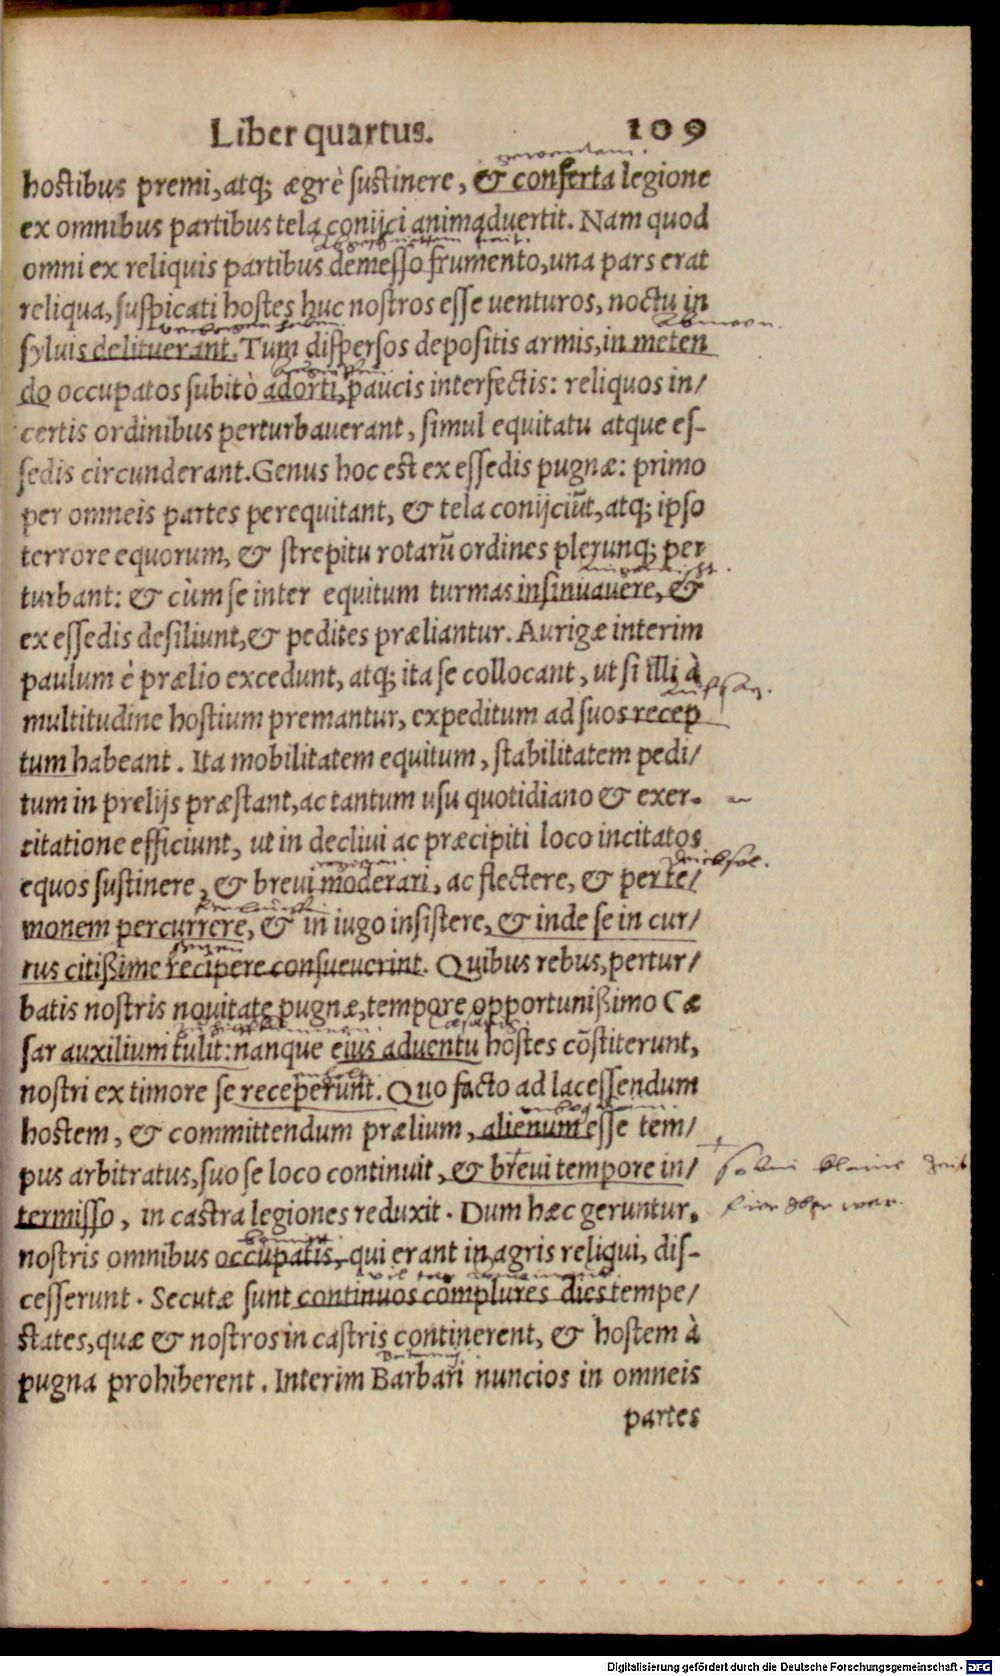 Liber quartus. 109
hostibus premi, atq; ægrè sustinere, & conferta legione
ex omnibus partibus tela conijci animaduertit. Nam quod
omni ex reliquis partibus demesso frumento, una pars erat
reliqua, suspicati hostes huc nostros esse uenturos, noctu in
syluis delituerant. Tum dispersos depositis armis, in meten
do occupatos subitò adorti, paucis interfectis: reliquos in/
certis ordinibus perturbauerant, simul equitatu atque es-
sedis circunderant. Genus hoc est ex essedis pugnæ: primo
per omneis partes perequitant, & tela conijciũt, atq; ipso
terrore equorum, & strepitu rotarũ ordines plerunq; per
turbant: & cùm se inter equitum turmas insinuauere, &
ex essedis desiliunt, & pedites præliantur. Aurigæ interim
paulum è prælio excedunt, atq; ita se collocant, ut si illi à
multitudine hostium premantur, expeditum ad suos recep
tum habeant. Ita mobilitatem equitum, stabilitatem pedi/
tum in prelijs præstant, ac tantum usu quotidiano & exer-
citatione efficiunt, ut in decliui ac præcipiti loco incitatos
equos sustinere, & breui moderari, ac flectere, & per te/
monem percurrere, & in iugo insistere, & inde se in cur/
rus citißime recipere consueuerint. Quibus rebus, pertur/
batis nostris nouitate pugnæ, tempore opportunißimo Cæ
sar auxilium tulit: nanque eius aduentu hostes cõstiterunt,
nostri ex timore se receperunt. Quo facto ad lacessendum
hostem, & committendum prælium, alienum esse tem/
pus arbitratus, suo se loco continuit, & breui tempore in/
termisso, in castra legiones reduxit. Dum hæc geruntur,
nostris omnibus occupatis, qui erant in agris reliqui, dis-
cesserunt. Secutæ sunt continuos complures dies tempe/
states, quæ & nostros in castris continerent, & hostem à
pugna prohiberent. Interim Barbari nuncios in omneis
partes
Digitalisierung gefördert durch die Deutsche Forschungsgemeinschaft - DFG